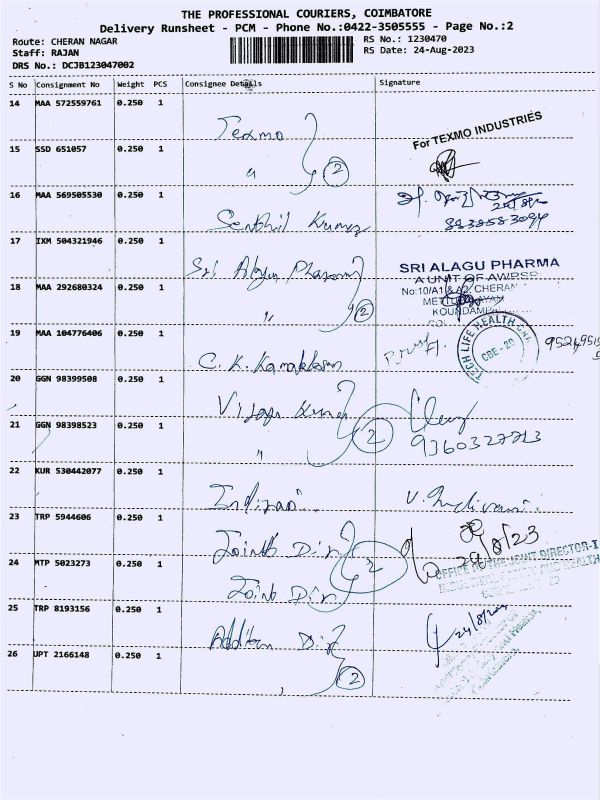 THE PROFESSIONAL COURIERS, COIMBATORE
Delivery Runsheet - PCM - Phone No.:0422-3505555 - Page No.:2
Route: CHERAN NAGAR
RS No.: 1230470
Staff: RAJAN
RS Date: 24-Aug-2023
DRS No.: DCJB123047002
S No Consignment No Weight PCS Consignee Details Signature
14 MAA 572559761 0.250 1 Texmo
For TEXMO INDUSTRIES
15 SSD 651057 0.250 1 " 2
16 MAA 569505530 0.250 1 Senthil Kumar
17 IXM 504321946 0.250 1 Sri Alagu Pharma
SRI ALAGU PHARMA
A UNIT OF
No:10/A1 & A2, CHERAN
18 MAA 292680324 0.250 1 " 2
19 MAA 104776406 0.250 1 C.K.
TECH LIFE HEALTH
CBE - 20
20 GGN 98399508 0.250 1 Vijaya Kumar
21 GGN 98398523 0.250 1 " 2
9360327713
22 KUR 530442077 0.250 1 Indirani V. Indirani
23 TRP 5944606 0.250 1 Joint Dir 2
24/8/23
24 MTP 5023273 0.250 1 Joint Dir
OFFICE OF THE JOINT DIRECTOR-I
25 TRP 8193156 0.250 1 Addition Dir
26 UPT 2166148 0.250 1 2